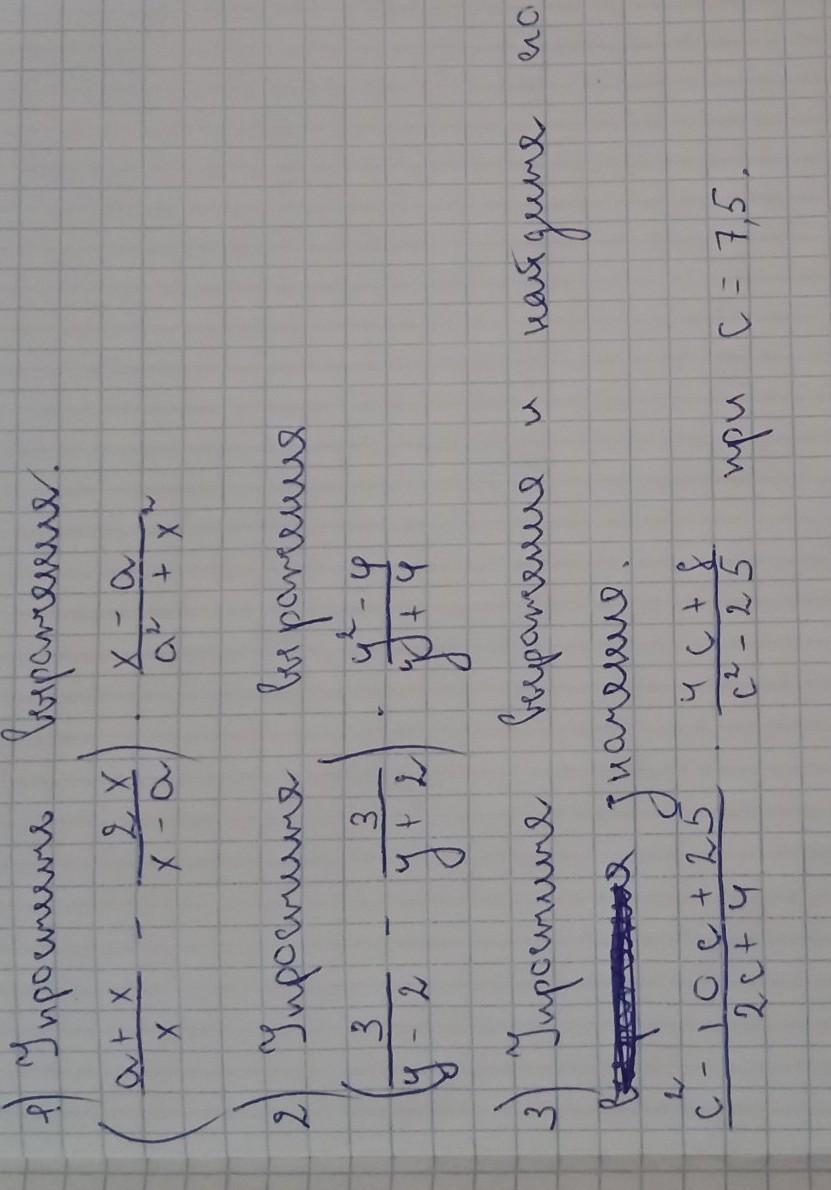 1) Упростите выражения.
(a + x / x - 2x / x - a) · x - a / a² + x²
2) Упростите выражения
(3 / y - 2 - 3 / y + 2) · y² - 4 / y + 4
3) Упростите выражения и найдите его
значения.
c² - 10c + 25 / 2c + 4 · 4c + 8 / c² - 25 при c = 7,5.